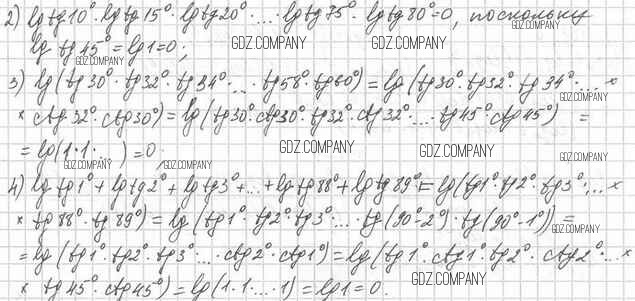 2) lg tg 10° · lg tg 15° · lg tg 20° · ... · lg tg 75° · lg tg 80° = 0, поскольку
GDZ.COMPANY
lg tg 45° = lg 1 = 0;
GDZ.COMPANY GDZ.COMPANY GDZ.COMPANY
3) lg (tg 30° · tg 32° · tg 34° · ... · tg 58° · tg 60°) = lg (tg 30° · tg 32° · tg 34° · ... ×
GDZ.COMPANY
× ctg 32° · ctg 30°) = lg (tg 30° · ctg 30° · tg 32° · ctg 32° · ... · tg 45° · ctg 45°) =
= lg (1 · 1 · ...) = 0.
GDZ.COMPANY GDZ.COMPANY GDZ.COMPANY GDZ.COMPANY GDZ.COMPANY
4) lg tg 1° + lg tg 2° + lg tg 3° + ... + lg tg 88° + lg tg 89° = lg (tg 1° · tg 2° · tg 3° · ... ×
× tg 88° · tg 89°) = lg (tg 1° · tg 2° · tg 3° · ... · tg (90° - 2°) · tg (90° - 1°)) =
GDZ.COMPANY
= lg (tg 1° · tg 2° · tg 3° ... · ctg 2° · ctg 1°) = lg (tg 1° · ctg 1° · tg 2° · ctg 2° · ... ×
× tg 45° · ctg 45°) = lg (1 · 1 · ... · 1) = lg 1 = 0.
GDZ.COMPANY